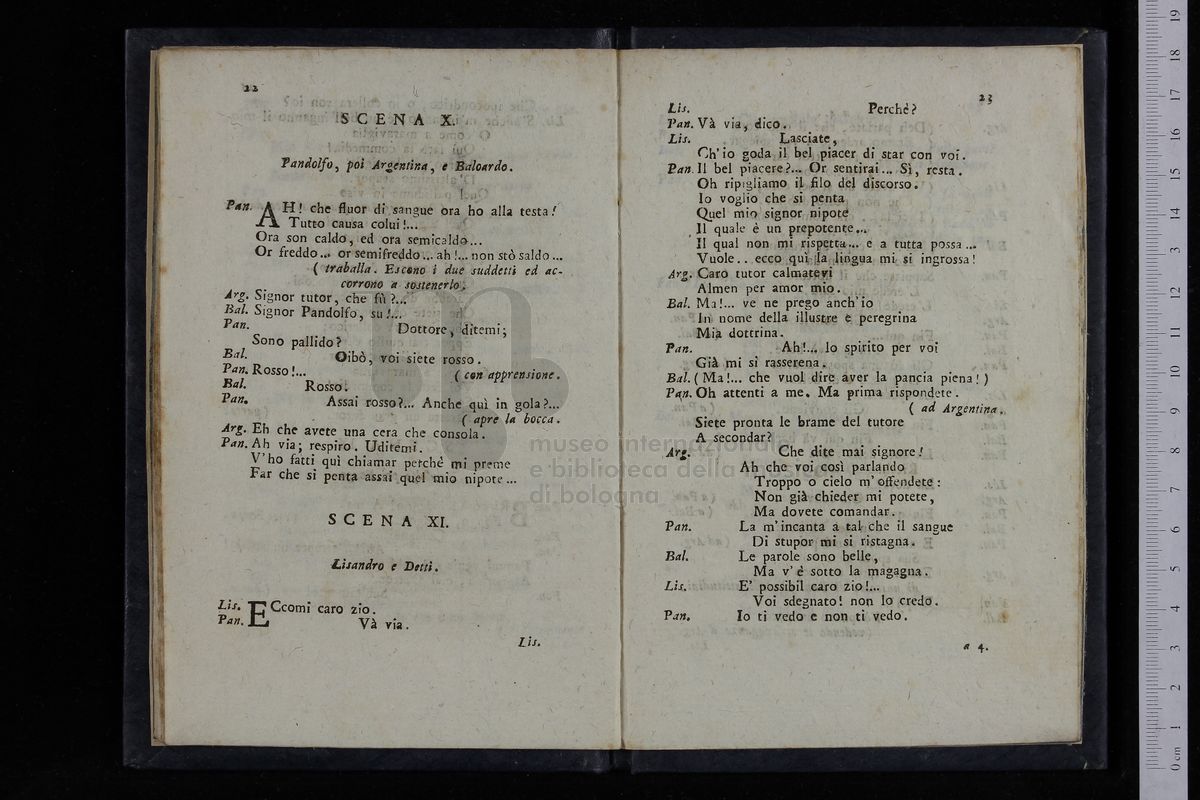 22
SCENA X.
Pandolfo, poi Argentina, e Baloardo.
Pan. AH! che fluor di sangue ora ho alla testa!
Tutto causa colui!...
Ora son caldo, ed ora semicaldo...
Or freddo... or semifreddo... ah!... non stò saldo...
( traballa. Escono i due suddetti ed ac-
corrono a sostenerlo.
Arg. Signor tutor, che fù?...
Bal. Signor Pandolfo, su!...
Pan. Dottore, ditemi;
Sono pallido?
Bal. Oibò, voi siete rosso.
Pan. Rosso!... ( con apprensione.
Bal. Rosso.
Pan. Assai rosso?... Anche quì in gola?...
( apre la bocca.
Arg. Eh che avete una cera che consola.
Pan. Ah via; respiro. Uditemi.
V'ho fatti quì chiamar perchè mi preme
Far che si penta assai quel mio nipote...
SCENA XI.
Lisandro e Detti.
Lis. ECcomi caro zio.
Pan. Và via.
Lis.
23
Lis. Perchè?
Pan. Và via, dico.
Lis. Lasciate,
Ch'io goda il bel piacer di star con voi.
Pan. Il bel piacere?... Or sentirai... Sì, resta.
Oh ripigliamo il filo del discorso.
Io voglio che si penta
Quel mio signor nipote
Il quale è un prepotente...
Il qual non mi rispetta... e a tutta possa...
Vuole.. ecco quì la lingua mi si ingrossa!
Arg. Caro tutor calmatevi
Almen per amor mio.
Bal. Ma!... ve ne prego anch'io
In nome della illustre e peregrina
Mia dottrina.
Pan. Ah!... lo spirito per voi
Già mi si rasserena.
Bal. ( Ma!... che vuol dire aver la pancia piena! )
Pan. Oh attenti a me. Ma prima rispondete.
( ad Argentina.
Siete pronta le brame del tutore
A secondar?
Arg. Che dite mai signore!
Ah che voi così parlando
Troppo o cielo m'offendete:
Non già chieder mi potete,
Ma dovete comandar.
Pan. La m'incanta a tal che il sangue
Di stupor mi si ristagna.
Bal. Le parole sono belle,
Ma v'è sotto la magagna.
Lis. E' possibil caro zio!...
Voi sdegnato! non lo credo.
Pan. Io ti vedo e non ti vedo.
a 4.
museo internazionale
e biblioteca della musica
di bologna
0 cm 1 2 3 4 5 6 7 8 9 10 11 12 13 14 15 16 17 18 19